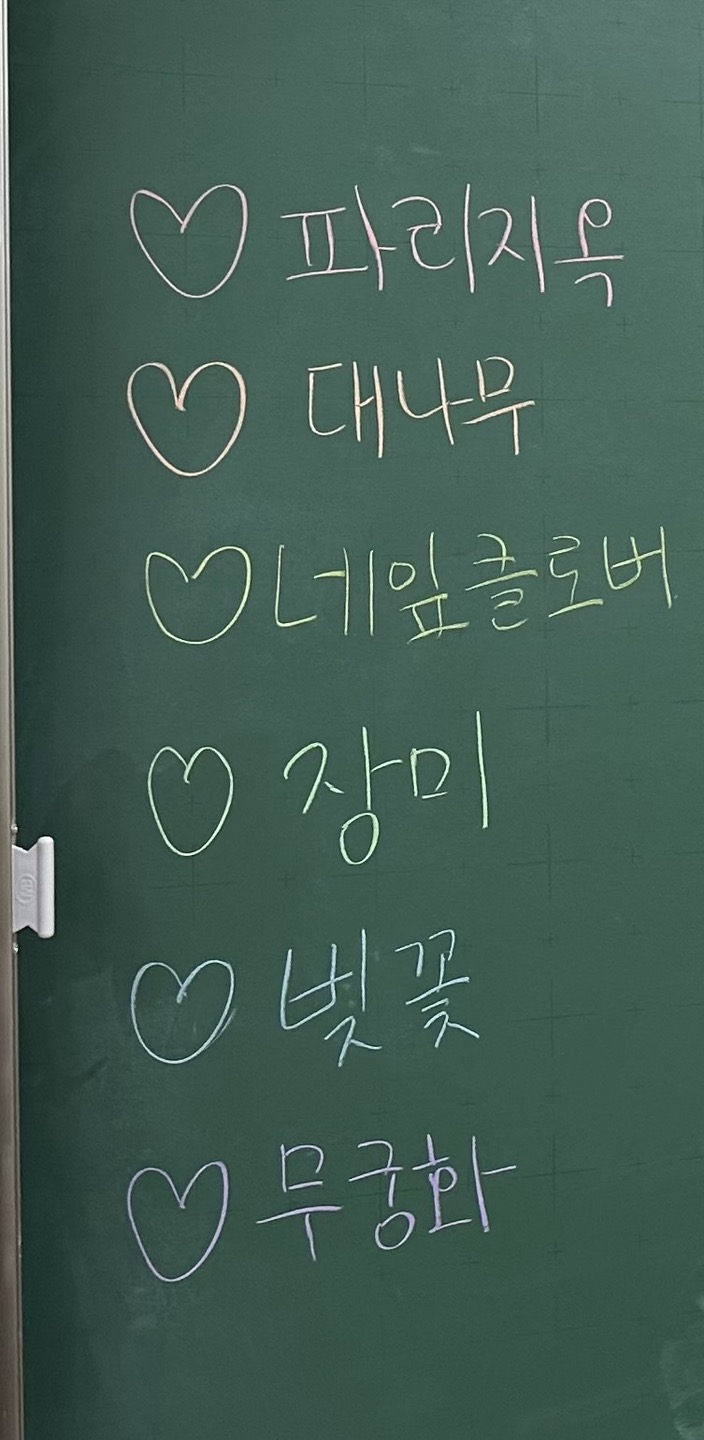 ♡ 파리지옥
♡ 대나무
♡ 네잎클로버
♡ 장미
♡ 벚꽃
♡ 무궁화